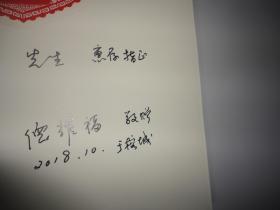 先生 惠存指正
德耀福 敬赠
2018.10.于榕城